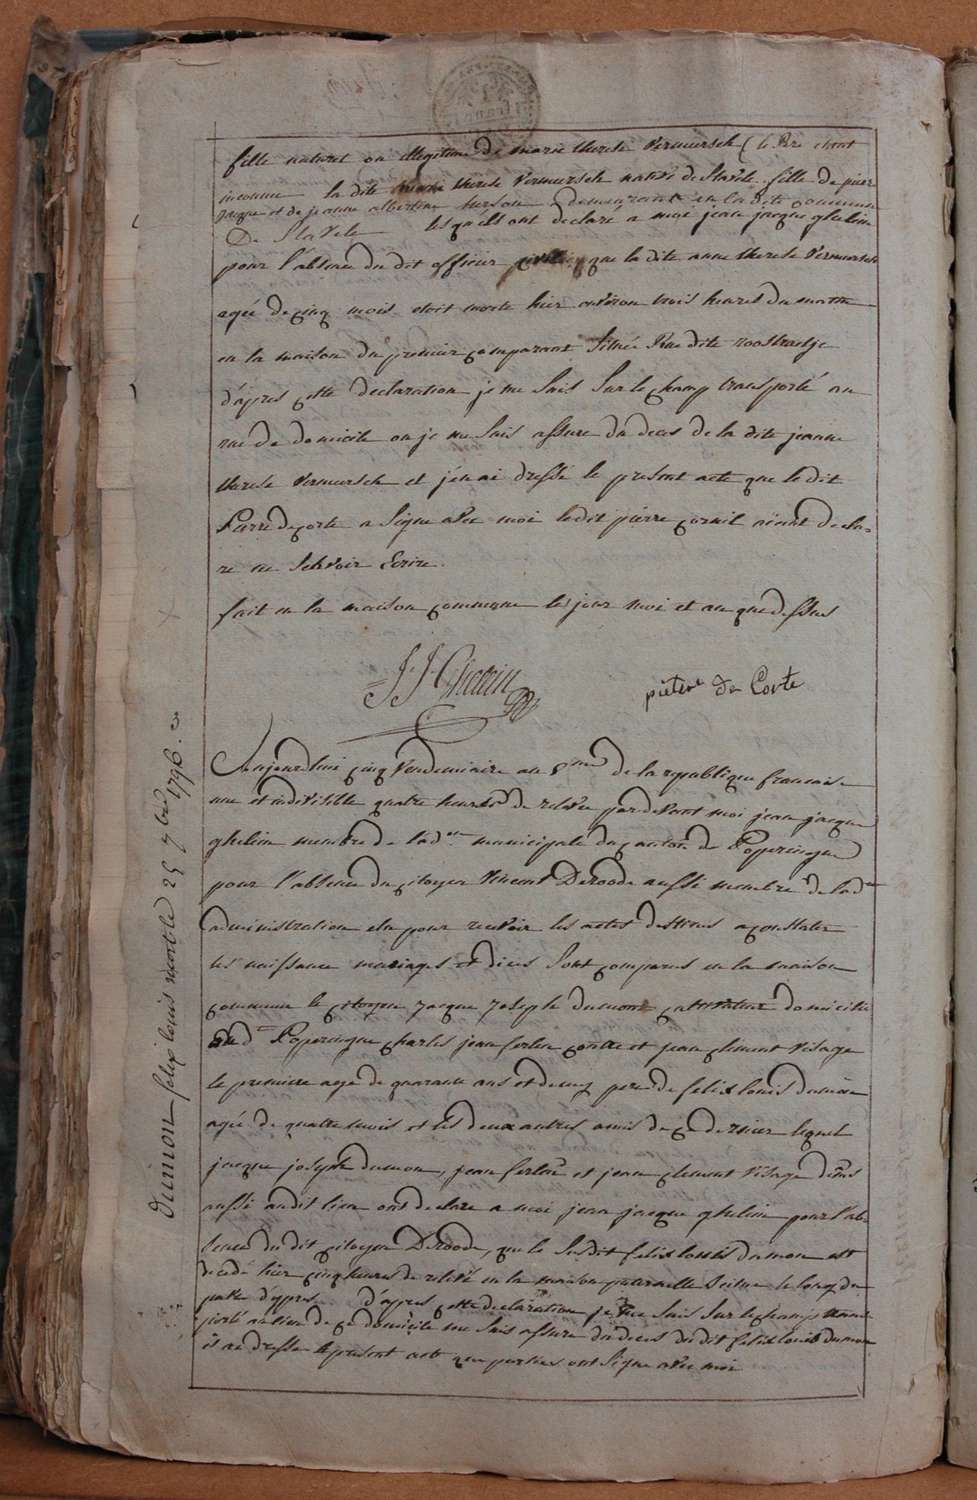 fille naturel ou illegitime de marie therese Vermeersch (le Pere etant
inconnue la dite marie therese Vermeersch native de Stavele fille de pierre
jacque et de jeanne albertine demeurante en la dite commune
De Stavele lesquels ont declare a moi jean jacque ghelein
pour l'absence du dit officier que la dite anne therese Vermeersch
agée de cinq mois etoit morte hier environ trois heures du matin
en la maison du premier comparant située Rue dite roostraetje
d'apres cette declaration je me suis sur le champ transporté au
rue de domicile ou je me suis assure du deces de la dite jeanne
therese Vermeersch et j'en ai dressé le present acte que le dit
Pierre de corte a signe avec moi le dit pierre cornil aiant decla-
re ne scavoir Ecrire.
fait en la maison commune les jour moi et an que dessus
J J Ghelein
pieter de Corte
Aujourdhui cinq Vendemiaire an 5me de la republique francaise
une et indivisible quatre heures de relevée pardevant moi jean jacque
ghelein membre de l'adon municipale du canton de Poperingue
pour l'absence du citoyen Vincent DeRoode aussi membre de l'ade
administration elu pour recevoir les actes destinés a constater
les naissance mariages et deces sont comparus en la maison
commune le citoyen jacque joseph dumon domicilié
au d Poperingue charles jean ferlin et jean clement Visage
le premiere age de quarante ans et pere de felix louis dumon
agée de quatre mois et les deux autres amis de ce dernier lequel
jacque joseph dumon, jean ferlin et jean clement Visage dems
aussi audit lieu ont declare a moi jean jacque ghelein pour l'ab-
sence du dit citoyen DeRoode, que le susdit felix louis dumon est
decedé hier cinq heures de relevé en la maison paternelle scitue le long du
porte d'ypres d'apres cette declaration je me suis sur le champ trans-
porté au lieu de ce domicile me suis assure du deces du dit felix louis dumon
et ai dresse le present acte que parties ont signe avec moi
dumon felix louis mort le 25 7bre 1796. 3